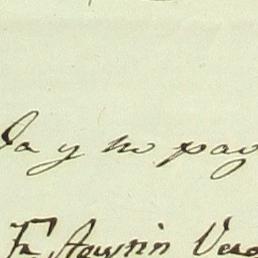 da y no pag
Fr. Agustin Ve